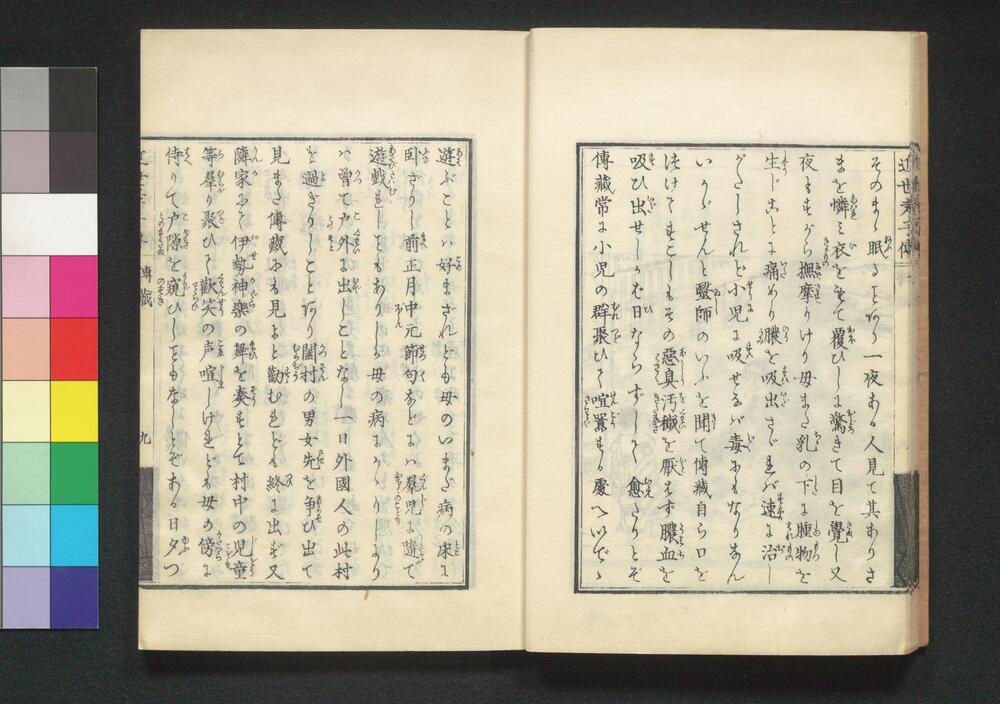 そのまゝ眠ることあり一夜ある人見て其ありさ
まを憐ミ衣をもて覆ひしに驚きて目を覺し又
夜もすがら撫摩りけり母また乳の下に腫物を
生じことに痛めり膿を吸出さゞれバ速に治し
がたしされど小児に吸せなバ毒にもなりなん
いかゞせんと醫師のいふを聞て傳藏自ら口を
つけてすこしもその惡臭汚穢を厭はず膿血を
吸ひ出せしかバ日ならずして愈たりとぞ
傳藏常に小児の群聚ひて喧嚣する處へいでゝ
遊ぶことハ好まざれとも母のいまだ病の床に
臥ざりし前正月中元節句などにハ羣児に隨て
遊戯れしこともありしが母の病にかゝりしより
ハ曾て戸外に出しことなし一日外國人の此村
を過ぎりしことあり闔村の男女先を争ひ出て
見また傳藏にも見よと勸むれとも終に出ず又
隣家にて伊勢神樂の舞を奏すとて村中の児童
等羣り聚ひて歡笑の声喧しけれとも母の傍に
侍りて戸隙を窺ひしこともなしとぞある日夕つ
傳藏
九